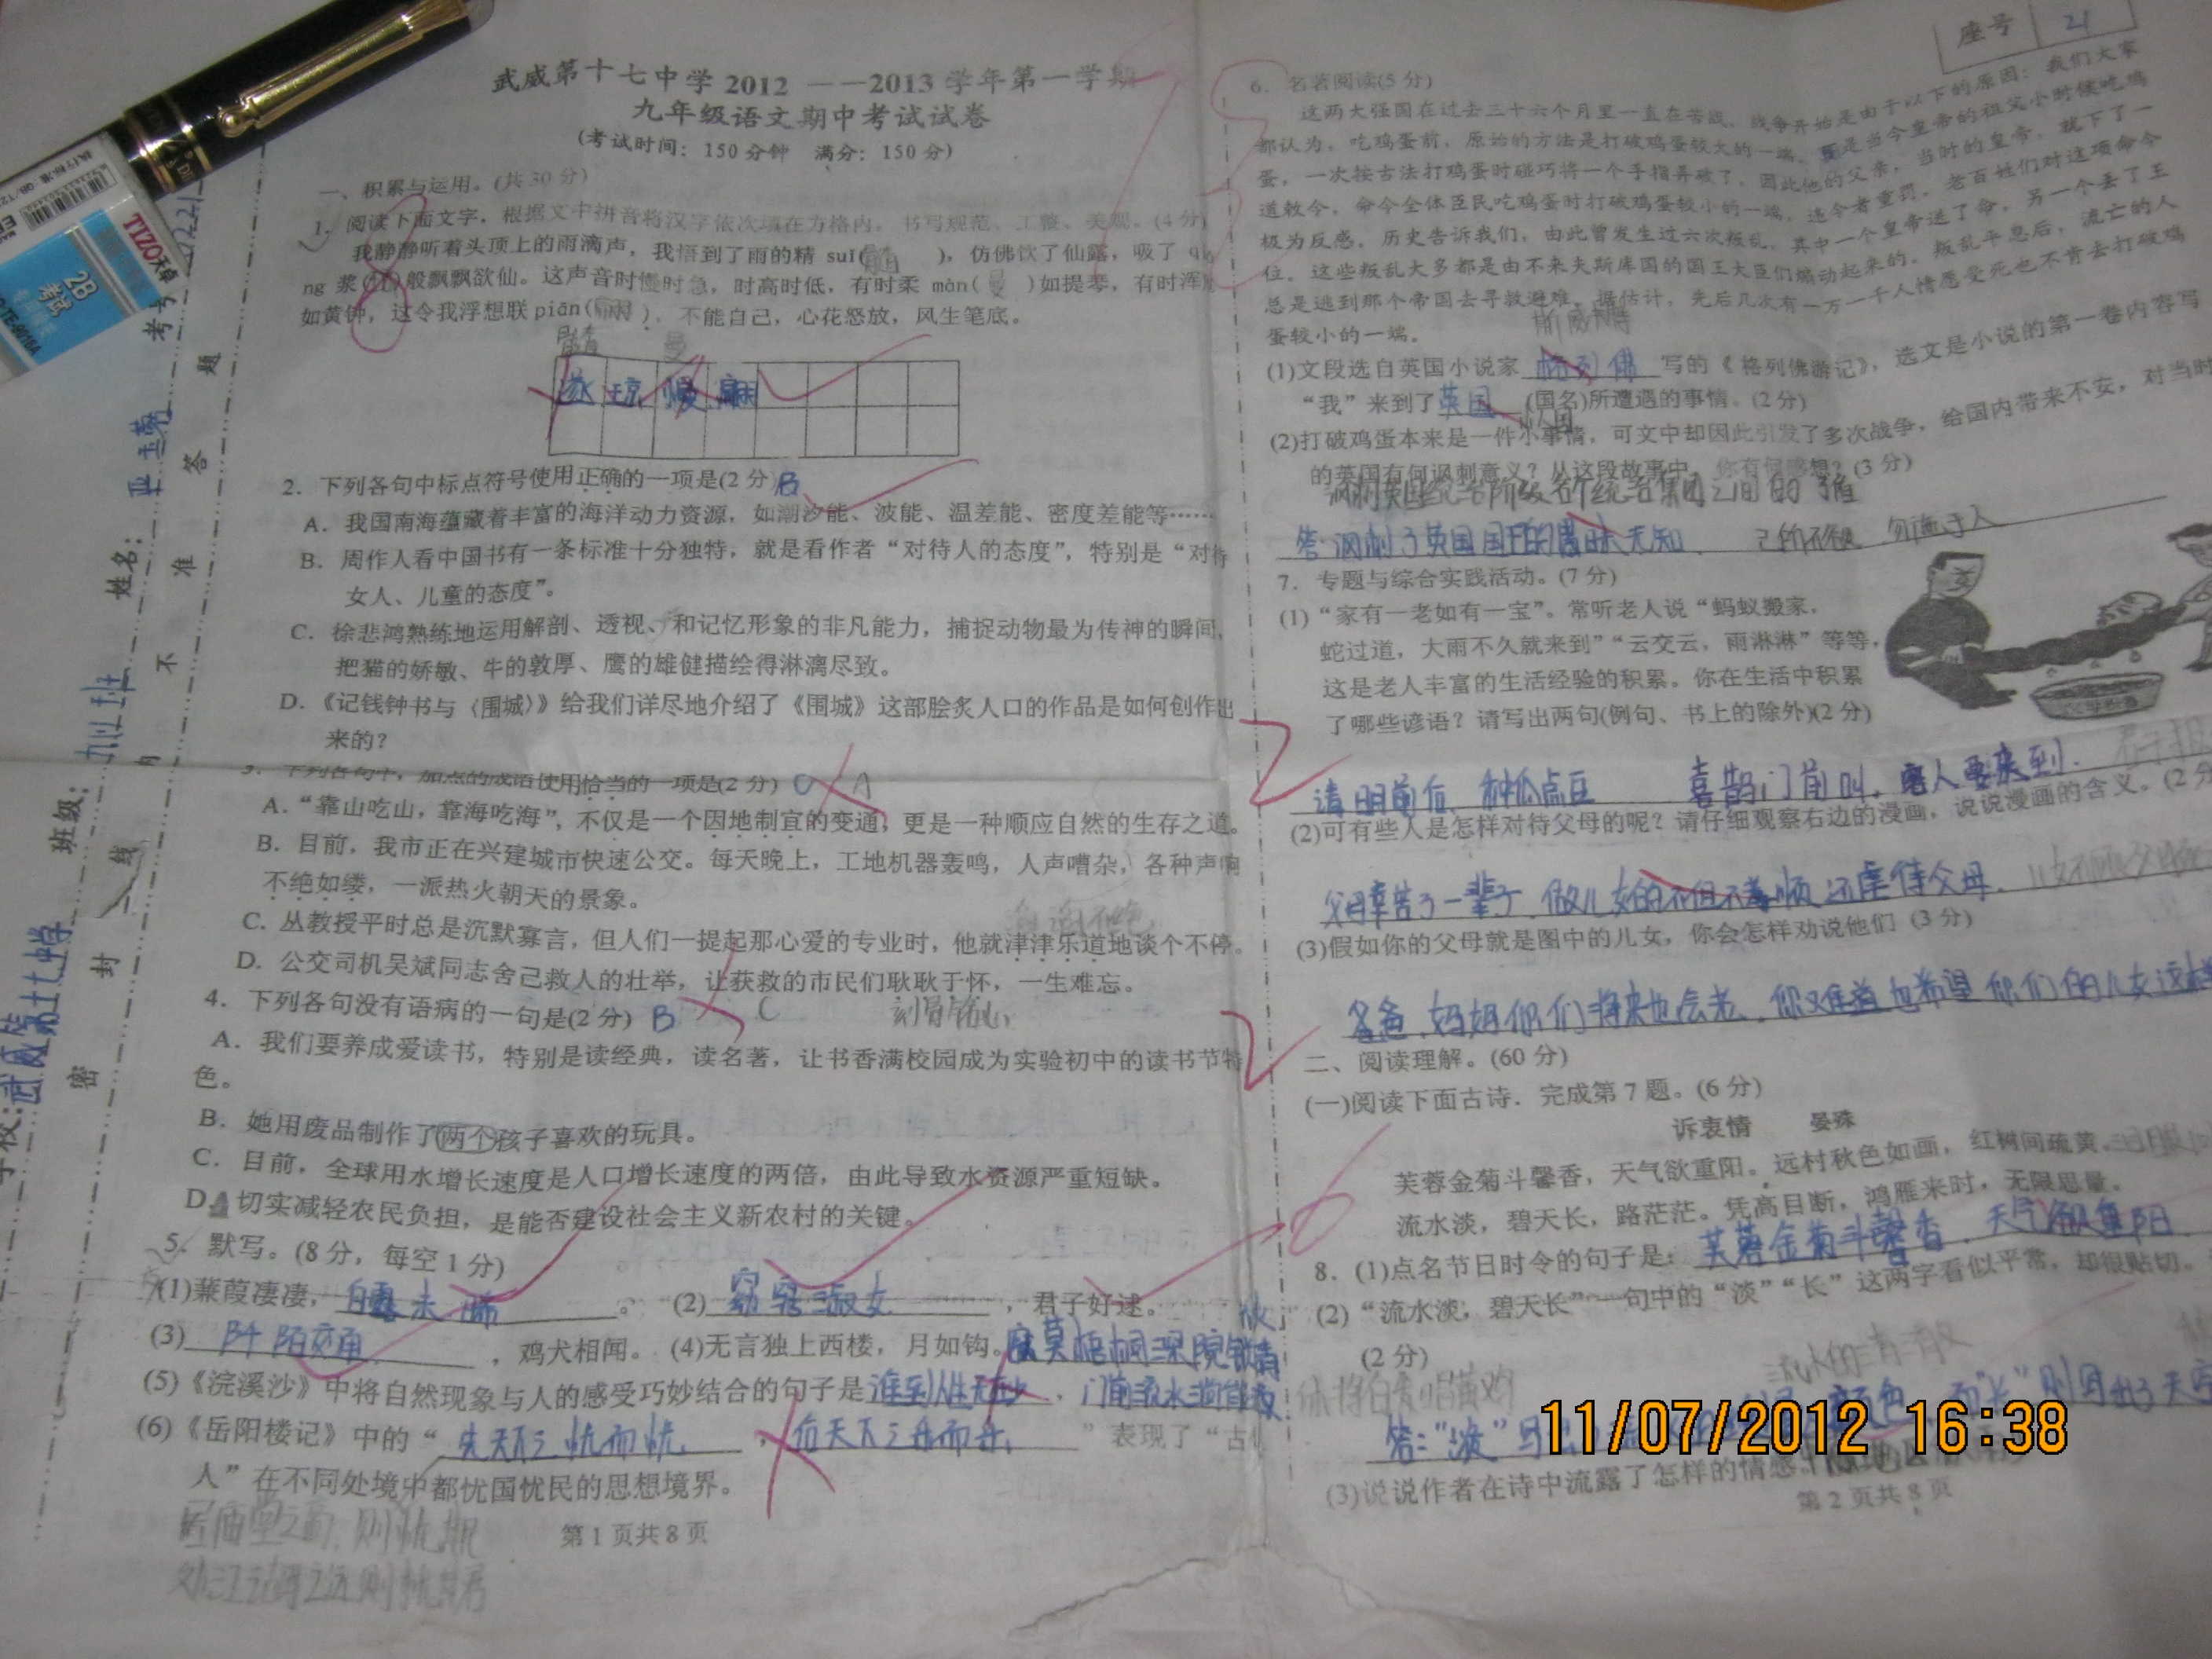 座号 21
武威第十七中学 2012 ——2013 学年第一学期
九年级语文期中考试试卷
(考试时间: 150 分钟 满分: 150 分)
一、积累与运用。(共 30 分)
1. 阅读下面文字,根据文中拼音将汉字依次填在方格内,书写规范、工整、美观。(4 分)
我静静听着头顶上的雨滴声,我悟到了雨的精 suǐ( ),仿佛饮了仙露,吸了 q
ng 浆( )般飘飘欲仙。这声音时慢时急,时高时低,有时柔 màn( 曼 )如提琴,有时浑
如黄钟,这令我浮想联 piān( ),不能自己,心花怒放,风生笔底。
髓 曼
琼 慢 翩
2. 下列各句中标点符号使用正确的一项是(2 分) B
A. 我国南海蕴藏着丰富的海洋动力资源,如潮汐能、波能、温差能、密度差能等……
B. 周作人看中国书有一条标准十分独特,就是看作者“对待人的态度”,特别是“对待
女人、儿童的态度”。
C. 徐悲鸿熟练地运用解剖、透视、和记忆形象的非凡能力,捕捉动物最为传神的瞬间,
把猫的娇敏、牛的敦厚、鹰的雄健描绘得淋漓尽致。
D.《记钱钟书与〈围城〉》给我们详尽地介绍了《围城》这部脍炙人口的作品是如何创作出
来的?
3. 下列各句中,加点的成语使用恰当的一项是(2 分) C A
A.“靠山吃山,靠海吃海”,不仅是一个因地制宜的变通,更是一种顺应自然的生存之道。
B. 目前,我市正在兴建城市快速公交。每天晚上,工地机器轰鸣,人声嘈杂,各种声响
不绝如缕,一派热火朝天的景象。
C. 丛教授平时总是沉默寡言,但人们一提起那心爱的专业时,他就津津乐道地谈个不停。
D. 公交司机吴斌同志舍己救人的壮举,让获救的市民们耿耿于怀,一生难忘。
4. 下列各句没有语病的一句是(2 分) B C 刻骨铭心
A. 我们要养成爱读书,特别是读经典,读名著,让书香满校园成为实验初中的读书节特
色。
B. 她用废品制作了两个孩子喜欢的玩具。
C. 目前,全球用水增长速度是人口增长速度的两倍,由此导致水资源严重短缺。
D. 切实减轻农民负担,是能否建设社会主义新农村的关键。
5. 默写。(8 分,每空 1 分)
(1)蒹葭凄凄,白露未晞。 (2)窈窕淑女,君子好逑。
(3)阡陌交通,鸡犬相闻。 (4)无言独上西楼,月如钩。寂寞梧桐深院锁清秋
(5)《浣溪沙》中将自然现象与人的感受巧妙结合的句子是谁到人生无再少,门前流水尚能
(6)《岳阳楼记》中的“先天下之忧而忧,后天下之乐而乐”表现了“古
人”在不同处境中都忧国忧民的思想境界。
居庙堂之高,则忧民
处江湖之远则忧其君
第 1 页共 8 页
6. 名著阅读(5 分)
这两大强国在过去三十六个月里一直在苦战。战争开始是由于以下的原因:我们大家
都认为,吃鸡蛋前,原始的方法是打破鸡蛋较大的一端,可是当今皇帝的祖父小时候吃鸡
蛋,一次按古法打鸡蛋时碰巧将一个手指弄破了,因此他的父亲,当时的皇帝,就下了一
道敕令,命令全体臣民吃鸡蛋时打破鸡蛋较小的一端,违令者重罚。老百姓们对这项命令
极为反感。历史告诉我们,由此曾发生过六次叛乱,其中一个皇帝送了命,另一个丢了王
位。这些叛乱大多都是由不来夫斯库国的国王大臣们煽动起来的。叛乱平息后,流亡的人
总是逃到那个帝国去寻救避难。据估计,先后几次有一万一千人情愿受死也不肯去打破鸡
蛋较小的一端。
(1)文段选自英国小说家 格列佛 写的《 格列佛游记》,选文是小说的第一卷内容写
“我”来到了英国(国名)所遭遇的事情。(2 分)
(2)打破鸡蛋本来是一件小事情,可文中却因此引发了多次战争,给国内带来不安,对当时
的英国有何讽刺意义?从这段故事中,你有何感想?(3 分)
答:讽刺了英国国王的愚昧无知. 己所不欲 勿施于人
7. 专题与综合实践活动。(7 分)
(1)“家有一老如有一宝”。常听老人说“蚂蚁搬家,
蛇过道,大雨不久就来到”“云交云,雨淋淋”等等,
这是老人丰富的生活经验的积累。你在生活中积累
了哪些谚语?请写出两句(例句、书上的除外)(2 分)
清明前后 种瓜点豆 喜鹊门前叫,客人要来到.
(2)可有些人是怎样对待父母的呢?请仔细观察右边的漫画,说说漫画的含义。(2 分
父母辛苦了一辈子,做儿女的不但不孝顺 还虐待父母.
(3)假如你的父母就是图中的儿女,你会怎样劝说他们 (3 分)
爸爸,妈妈你们将来也会老,你又难道也希望你们的儿女这样
二、阅读理解。(60 分)
(一)阅读下面古诗.完成第 7 题。(6 分)
诉衷情 晏殊
芙蓉金菊斗馨香,天气欲重阳。远村秋色如画,红树间疏黄。
流水淡,碧天长,路茫茫。凭高目断,鸿雁来时,无限思量。
8. (1)点名节日时令的句子是:芙蓉金菊斗馨香,天气欲重阳
(2)“流水淡,碧天长”一句中的“淡”“长”这两字看似平常,却很贴切。
(2 分)
答:“淡”写出 颜色,而“长”则写出了天空
(3)说说作者在诗中流露了怎样的情感
第 2 页共 8 页
11/07/2012 16:38
学校:武威第十七中学
班级:
姓名:
考号
密 封 线 内 不 准 答 题
TIZO天卓
2B
考试